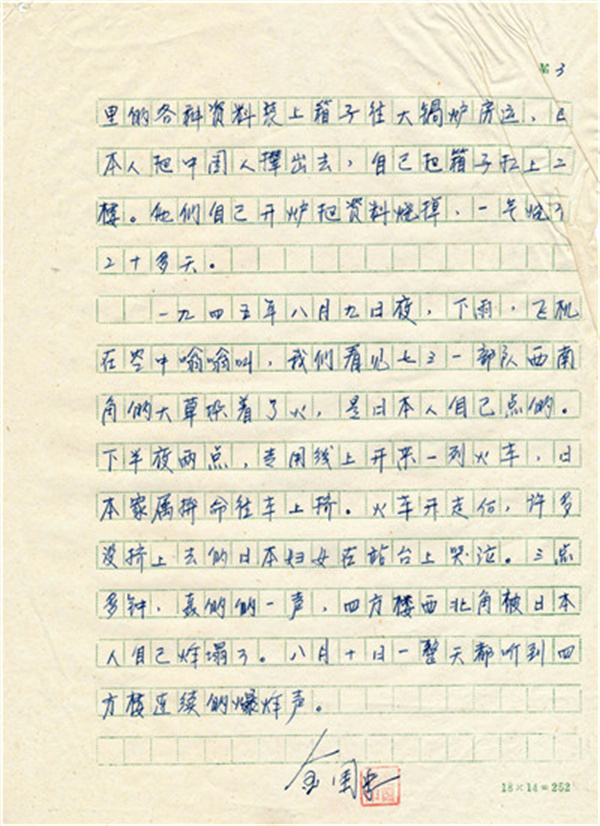 № 3
里的各种资料装上箱子往大锅炉房运，日
本人把中国人撵出去，自己把箱子扛上二
楼。他们自己开炉把资料烧掉，一气烧了
二十多天。
一九四五年八月九日夜，下雨，飞机
在空中嗡嗡叫，我们看见七三一部队西南
角的大草垛着了火，是日本人自己点的。
下半夜两点，专用线上开来一列火车，日
本家属拚命往车上挤。火车开走后，许多
没挤上去的日本妇女在站台上哭泣。三点
多钟，轰的一声，四方楼西北角被日本
人自己炸塌了。八月十日一整天都听到四
方楼连续的爆炸声。
金国忠
18×14=252